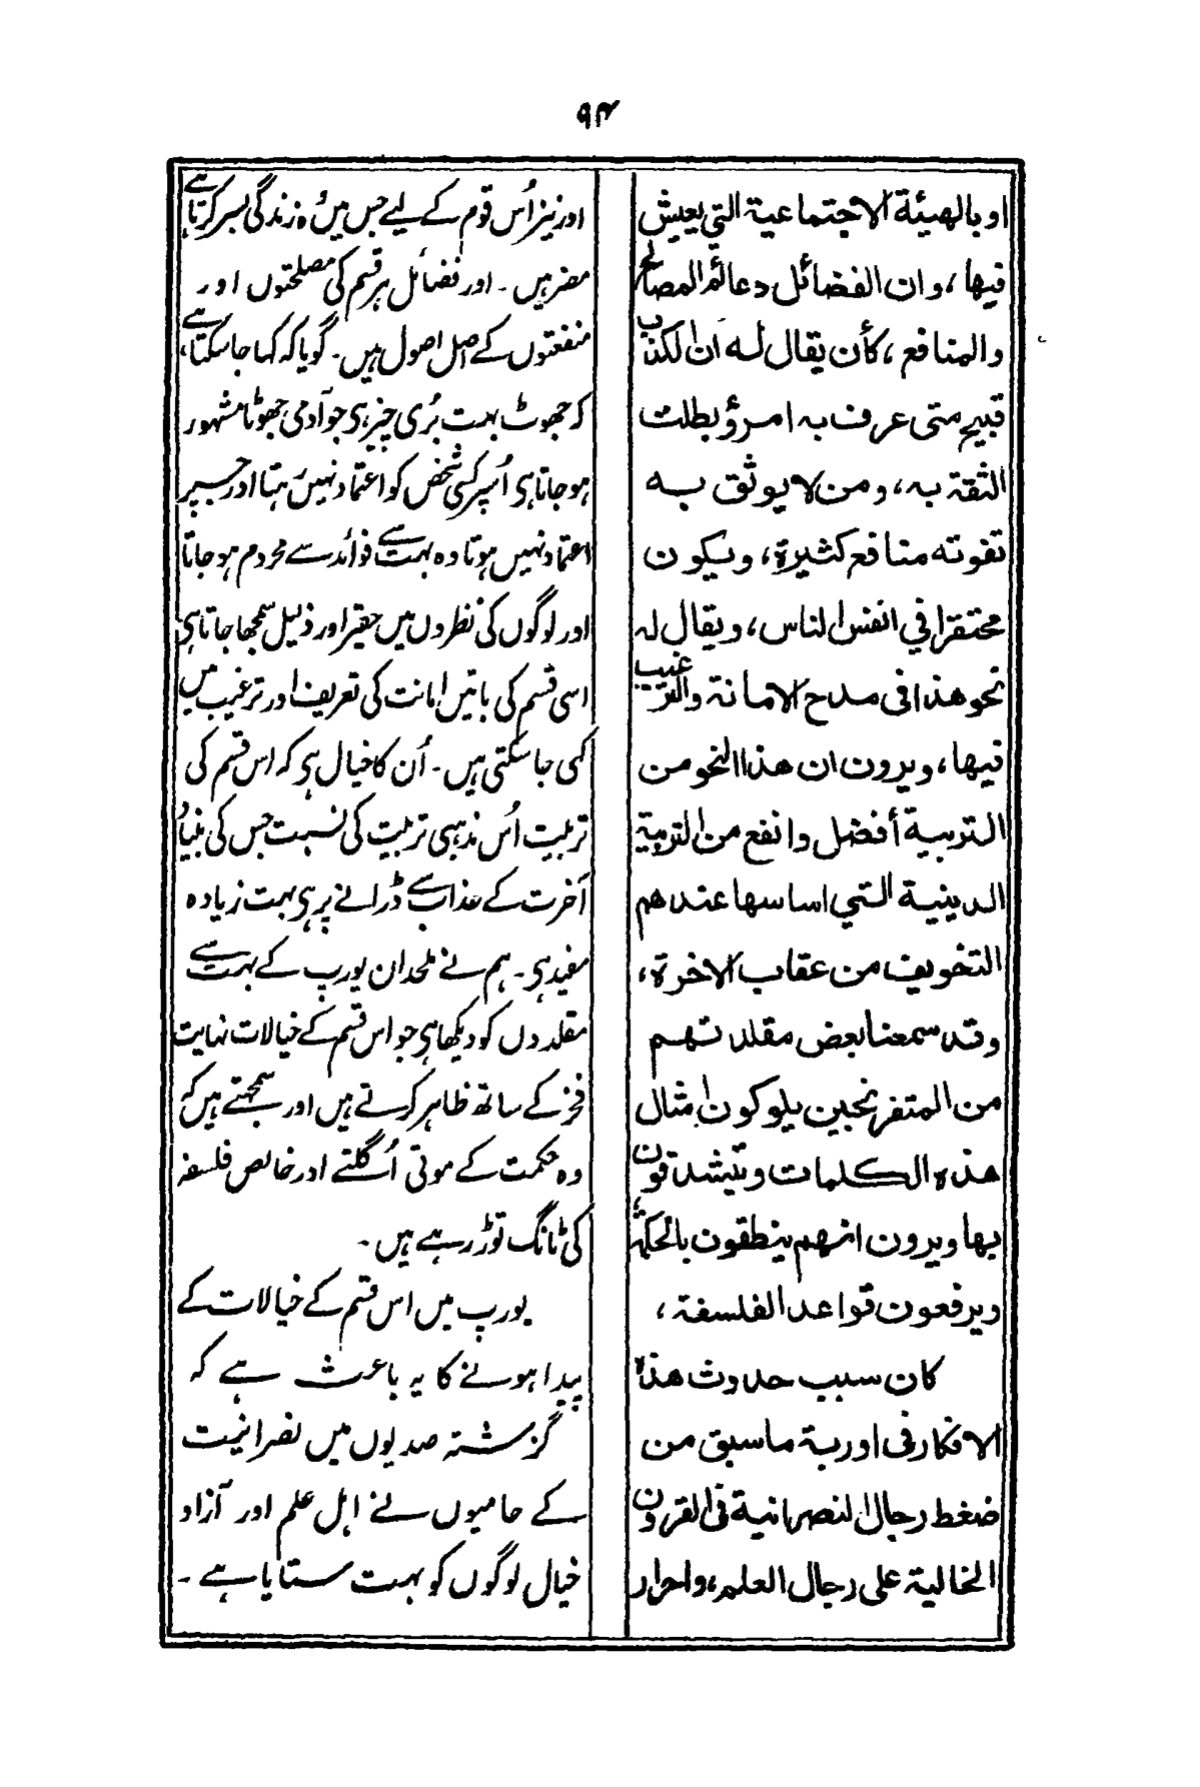 ۹۴
او بالهيئة الاجتماعية التي يعيش
فيها ، وان الفضائل دعائم المصالح
والمنافع ، كأن يقال له ان الكذب
قبيح متى عرف به امرؤ بطلت
الثقة به ، ومن لا يوثق به
تفوته منافع كثيرة ، ويكون
محتقرا في انفس الناس ، ويقال له
نحو هذا فى مدح الامانة والترغيب
فيها ، ويرون ان هذا النحو من
التربية أفضل وانفع من التربية
الدينية التي اساسها عندهم
التخويف من عقاب الاخرة ،
وقد سمعنا بعض مقلدتهم
من المتفرنجين يلوكون امثال
هذه الكلمات ويتشدقون
بها ويرون انهم ينطقون بالحكمة
ويرفعون قواعد الفلسفة ،
كان سبب حدوث هذه
الافكار فى اوربة ما سبق من
ضغط رجال النصرانية فى القرون
الخالية على رجال العلم ، واحرار
اور نیز اُس قوم کے لیے جس میں وُہ زندگی بسر کرتا ہے
مضر ہیں ۔ اور فضائل ہر قسم کی مصلحتوں اور
منفعتوں کے اصل اصول ہیں ۔ گویا کہ کہا جا سکتا ہے ،
کہ جھوٹ بہت بُری چیز ہی جو آدمی جھوٹا مشہور
ہو جاتا ہی اُسپر کسی شخص کو اعتماد نہیں رہتا اور جسپر
اعتماد نہیں ہوتا وہ بہت سے فوائد سے محروم ہو جاتا
اور لوگوں کی نظروں میں حقیر اور ذلیل سمجھا جاتا ہی
اسی قسم کی باتیں امانت کی تعریف اور ترغیب میں
کہی جا سکتی ہیں ۔ اُن کا خیال ہی کہ اس قسم کی
تربیت اُس مذہبی تربیت کی نسبت جس کی بنیاد
آخرت کے عذاب سے ڈرانے پر ہی بہت زیادہ
مفید ہی ۔ ہم نے ملحدان یورپ کے بہت سے
مقلدوں کو دیکھا ہی جو اس قسم کے خیالات نہایت
فخر کے ساتھ ظاہر کرتے ہیں اور سمجھتے ہیں کہ
وہ حکمت کے موتی اُگلتے اور خالص فلسفہ
کی ٹانگ توڑ رہے ہیں ۔
یورپ میں اس قسم کے خیالات کے
پیدا ہونے کا یہ باعث ہے کہ
گزشتہ صدیوں میں نصرانیت
کے حامیوں نے اہل علم اور آزاد
خیال لوگوں کو بہت ستایا ہے ۔